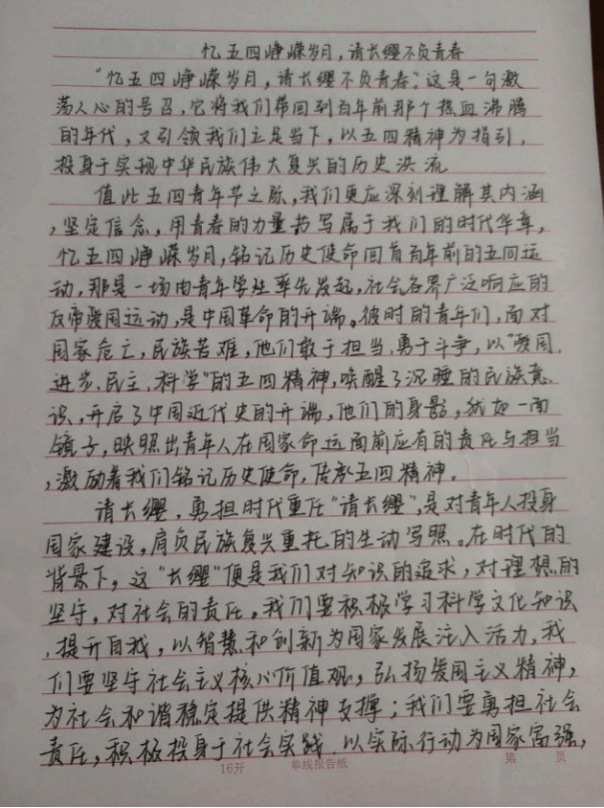 忆五四峥嵘岁月,请长缨不负青春
“忆五四峥嵘岁月,请长缨不负青春”,这是一句激
荡人心的号召,它将我们带回到百年前那个热血沸腾
的年代,又引领我们立足当下,以五四精神为指引,
投身于实现中华民族伟大复兴的历史洪流
值此五四青年节之际,我们更应深刻理解其内涵
,坚定信念,用青春的力量书写属于我们的时代华章,
忆五四峥嵘岁月,铭记历史使命回首百年前的五四运
动,那是一场由青年学生率先发起,社会各界广泛响应的
反帝爱国运动,是中国革命的开端。彼时的青年们,面对
国家危亡,民族苦难,他们敢于担当,勇于斗争,以“爱国,
进步,民主,科学”的五四精神,唤醒了沉睡的民族意
识,开启了中国近代史的开端,他们的身影,犹如一面
镜子,映照出青年人在国家命运面前应有的责任与担当
,激励着我们铭记历史使命,传承五四精神。
请长缨,勇担时代重任“请长缨”,是对青年人投身
国家建设,肩负民族复兴重托的生动写照。在时代的
背景下,这“长缨”便是我们对知识的追求,对理想的
坚守,对社会的责任,我们要积极学习科学文化知识
,提升自我,以智慧和创新为国家发展注入活力,我
们要坚守社会主义核心价值观,弘扬爱国主义精神,
为社会和谐稳定提供精神支撑;我们要勇担社会
责任,积极投身于社会实践,以实际行动为国家富强,
16开 单线报告纸 第 页